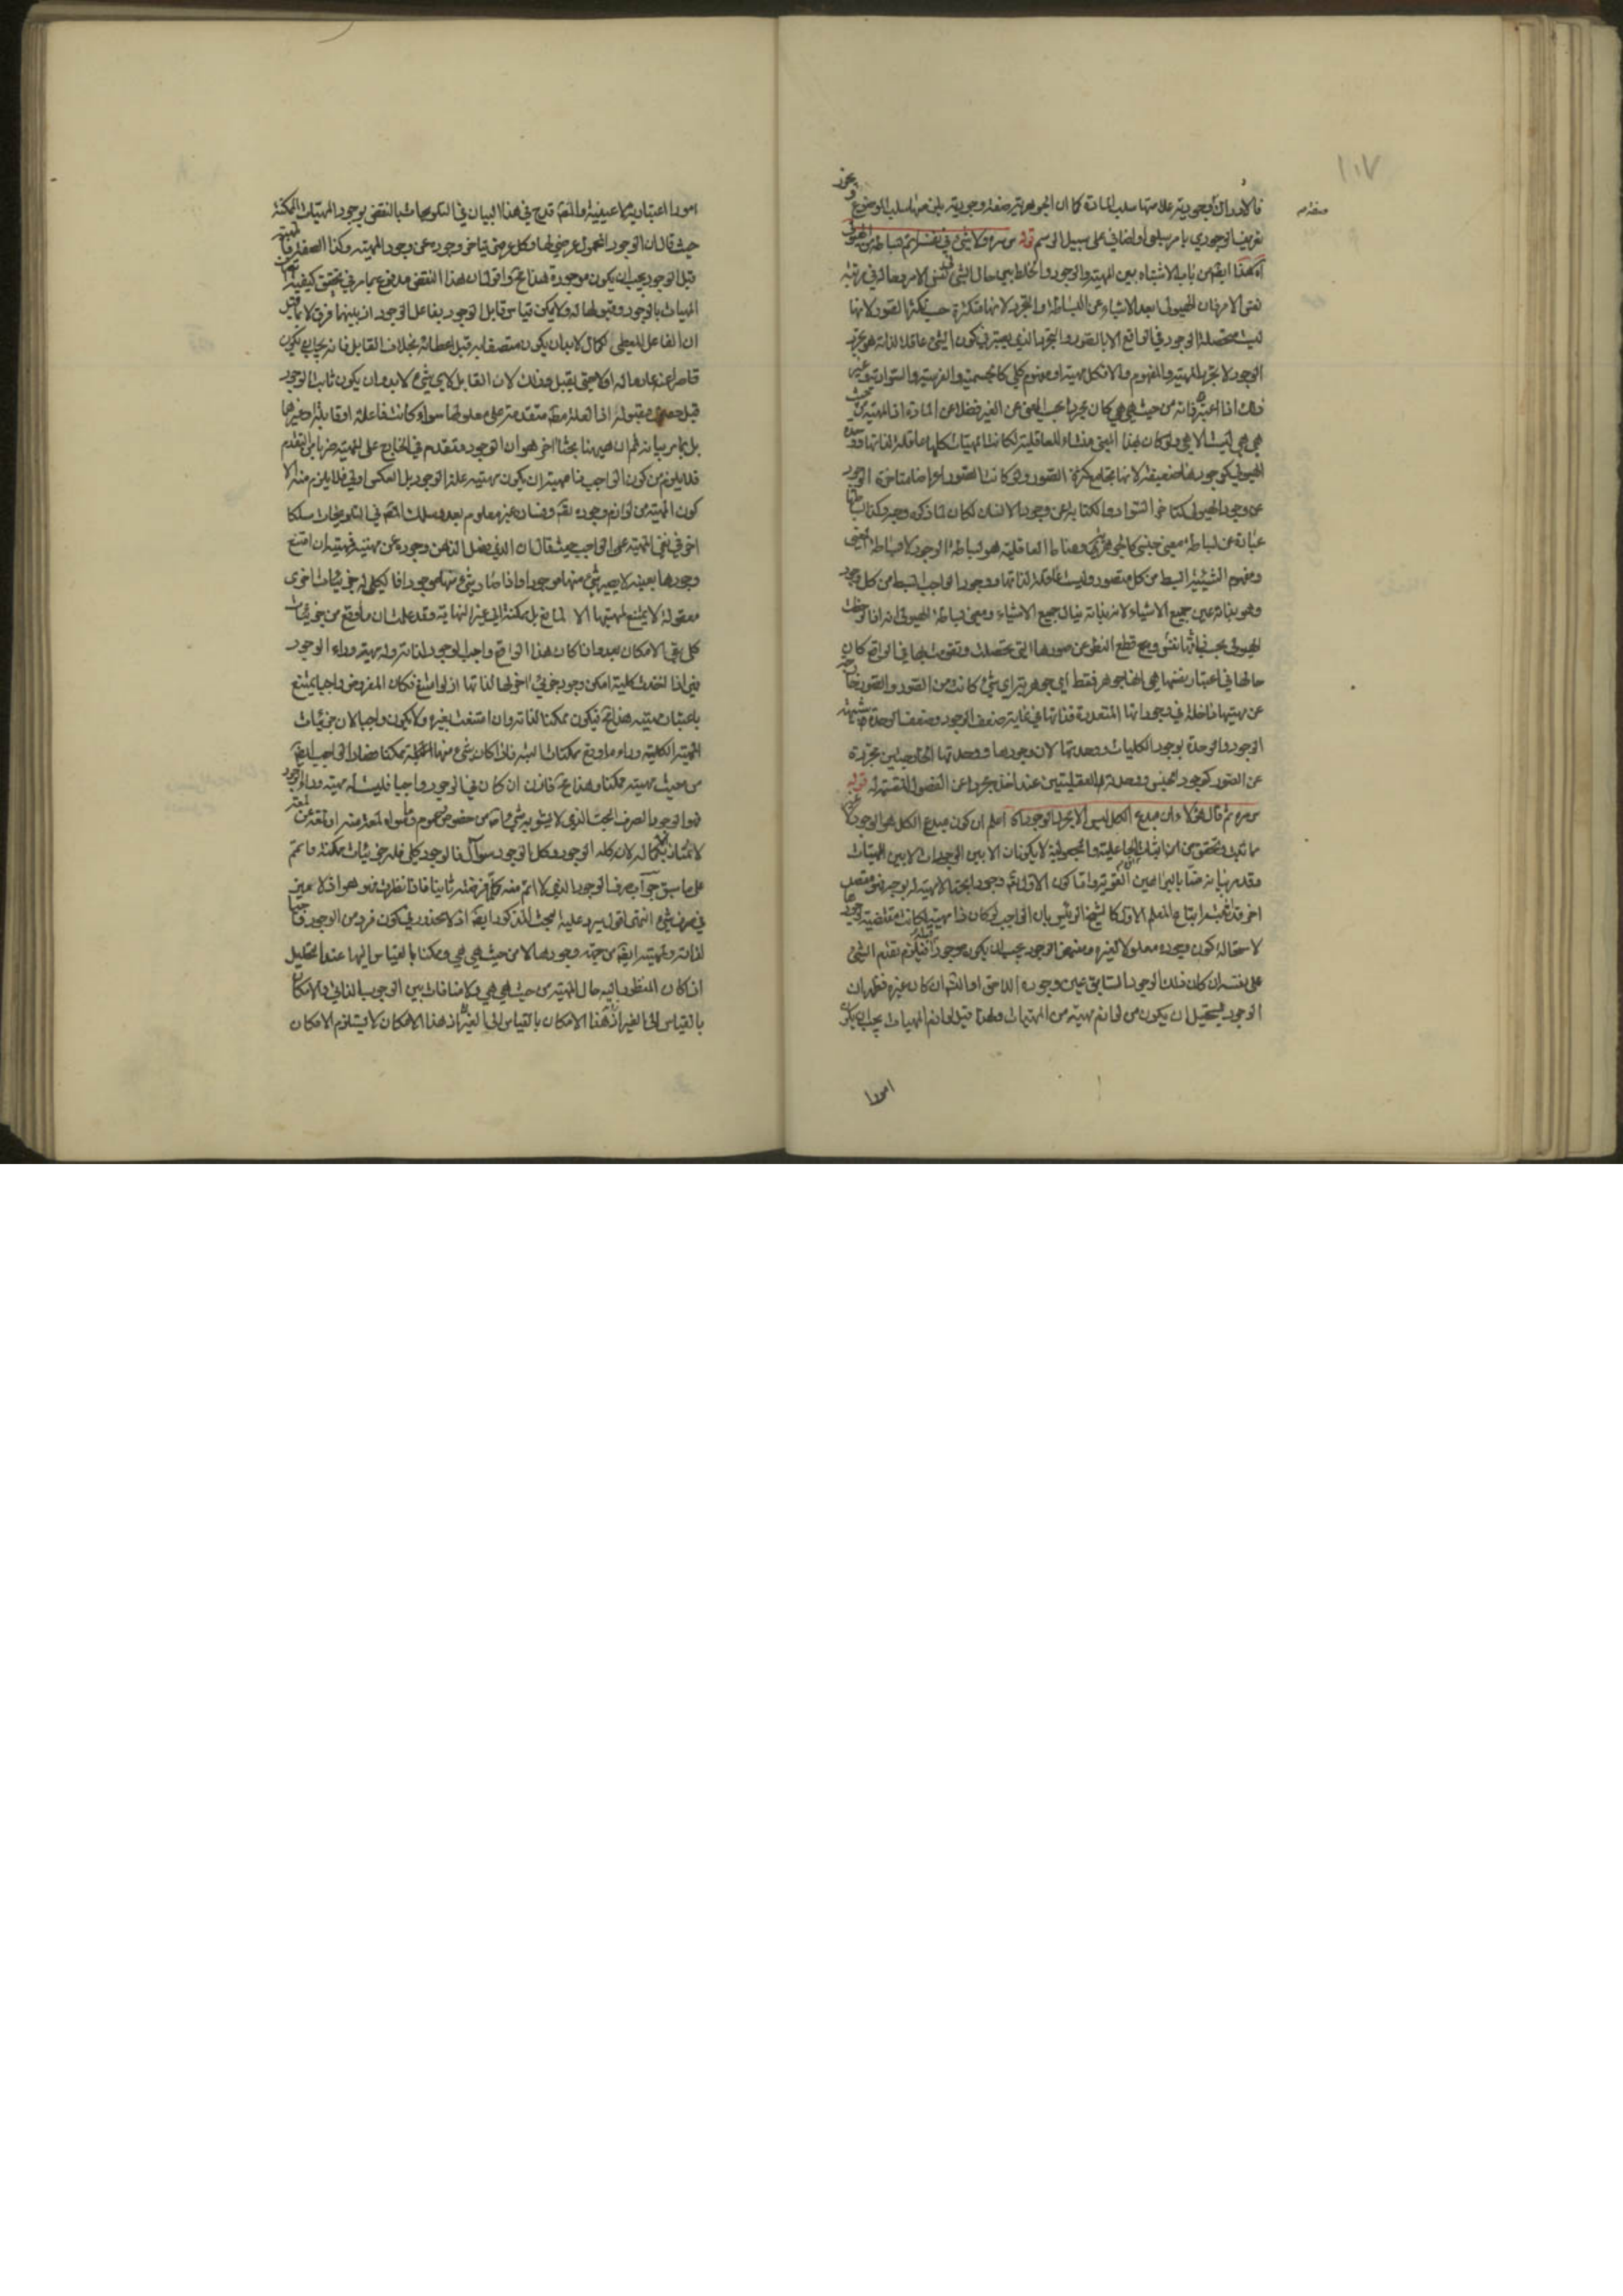 ١٠٧
فالادراك وجودية علامتها سلب المادة كما ان الجوهرية صفة وجودية يلزمها سلب الموضوع
تعريف الوجودي بامر سلبي او اضافي على سبيل الرسم قوله س سره ولا شيء في نفسه اتم بساطة من الهيولى
آه هذا ايضا من باب الاشتباه بين المهية والوجود والخلط بين حال الشيء في نفس الامر وحاله في مرتبة
نفس الامر فان الهيولى ابعد الاشياء عن البساطة والتجرد لانها متكثرة حسب تكثر الصور لانها
ليست متحصلة الوجود في الواقع الا بالصور والتجرد الذي يعتبر في كون الشيء عاقلا لذاته هو تجرد
الوجود لا تجرد المهية والمفهوم والا فكل مهية او مفهوم كلي كالجسمية والفرسية والسوادية وغير
ذلك اذا اعتبر ذاته من حيث هي هي كان مجردا بحسب المعنى عن الغير فضلا عن المادة اذ المهية من حيث
هي هي ليست الا هي ولو كان هذا المعنى منشاء للعاقلية لكانت المهيات كلها عاقلة لذاتها ووحدة
الهيولى كوجودها ضعيفة لانها تجامع كثرة الصور ولو كانت الصور اعراضا متاخرة الوجود
عن وجود الهيولى كتاخر السواد والكتابة عن وجود الانسان لكان لما ذكره وجه وكذا بساطتها
عبارة عن بساطة معنى جنسي كالجوهر والشيء ومناط العاقلية هو بساطة الوجود لا بساطة المعنى
ومفهوم الشيئية ابسط من كل متصور وليست عاقلة لذاتها ووجود الواجب ابسط من كل وجود
وهو بذاته عين جميع الاشياء لانه بذاته ينال جميع الاشياء ومعنى بساطة الهيولى انه اذا لوحظت
الهيولى بحسب ذاتها نفسها مع قطع النظر عن صورها التي تحصلت وتقومت بها في الواقع كان
حالها في اعتبار نفسها هي انها جوهر فقط اي جوهرية اي شيء كانت من الصور والصور خارجة
عن مهيتها داخلة في وجوداتها المتعددة فذاتها في غاية ضعف الوجود وضعف الوحدة مشبهة
الوجود والوحدة بوجود الكليات ووحدتها لان وجودها ووحدتها الخارجيتين مجردة
عن الصور كوجود الجنس ووحدته العقليتين عند اخذه مجردا عن الفصول المقسمة له قوله
س سره ثم قال هؤلاء ان مبدع الكل ليس الا مجرد الوجود آه اعلم ان كون مبدع الكل هو الوجود
ما ثبت وتحقق من ان اثبات الجاعلية والمجعولية لا يكونان الا بين الوجودات لا بين المهيات
وقد مر بيانه منا بالبراهين القوية واما كون الاول تعالى وجودا بحتا لا مهية له بوجه فهو مقصد
اخر قد تجشم اتباع المعلم الاول كالشيخ الرئيس بان الواجب لو كان ذا مهية لكانت مقتضية لوجودها
لاستحالة كون وجوده معلولا لغيره ومقتضي الوجود يجب ان يكون موجودا قبله فيلزم تقدم الشيء
على نفسه ان كان ذلك الوجود السابق عين وجوده اللاحق او التسلسل ان كان غيره فظهر ان
الوجود يستحيل ان يكون من لوازم مهية من المهيات ولهذا قيل لوازم المهيات يجب ان يكون
امورا
امورا اعتبارية لا عينية والمصنف قدح في هذا البيان في التلويحات بالنقض بوجود المهيات الممكنة
حيث قال ان الوجود المحمول عرضي لها وكل عرضي يتاخر وجوده عن وجود المهية وكذا الصفة فالمهية
قبل الوجود يجب ان يكون موجودة هذا مح واقول ان هذا النقض مدفوع بما مر في تحقيق كيفية اتصاف
المهيات بالوجود وقبولها له ولا يمكن قياس قابل الوجود بفاعل الوجود اذ بينهما فرق لا بما قيل
ان الفاعل المعطي لكمال لا بد ان يكون متصفا به قبل اعطائه بخلاف القابل فانه يجب ان يكون
قاصرا عنه عادما له اولا حتى يقبل وذلك لان القابل لاي شيء لا بد وان يكون ثابت الوجود
قبل حصول مقبوله اذ العلة مطلقا متقدمة على معلولها سواء كانت فاعلة او قابلة او غيرهما
بل بما مر بيانه ثم ان ههنا بحثا اخر هو ان الوجود متقدم في الخارج على المهية ضربا من التقدم
فلا يلزم من كون الواجب ذا مهية ان يكون مهيته علة الوجود بل العكس اولى فلا يلزم منه الا
كون المهية من لوازم وجوده تعالى وفساده غير معلوم بعد وسلك المصنف في التلويحات مسلكا
اخر في نفي المهية على الواجب حيث قال ان الذي فصل الذهن وجوده عن مهيته فمهيته ان امتنع
وجودها بعينه لا يصير شيء منها موجودا واذا صار شيء منها موجودا فالكلي له جزئيات اخرى
معقولة لا يمتنع لمهيتها الا لمانع بل ممكنة الى غير النهاية وقد علمت ان ما وقع من جزئيات
كلي بقي الامكان بعد واذا كان هذا الواقع واجب الوجود لذاته وله مهية وراء الوجود
فهي اذا اخذت كلية امكن وجود جزئي اخر لها لذاتها اذ لو امتنع لكان المفروض واجبا يمتنع
باعتبار مهيته هذا مح فيكون ممكنا لذاته وان امتنعت بغيره ولا يكون واجبا لان جزئيات
المهية الكلية وراء ما وقع ممكنات البتة فاذا كان شيء منها الجملة ممكنا فصار الواجب ايضا
من حيث مهيته ممكنا وهذا مح فاذن ان كان في الوجود واجبا فليست له مهية وراء الوجود
فهو الوجود الصرف البحت الذي لا يشوبه شيء من خصوص وعموم وما سواه لمعة منه او لمعة عن لمعة
لا يمتاز الا بكماله لان كله الوجود وكل الوجود سؤال فالوجود كلي فله جزئيات ممكنة فما تمم
على ما سبق جواب صرف الوجود الذي لا اتم منه كلما فرضته ثانيا فاذا نظرت فهو هو اذ لا ميز
في صرف شيء انتهى اقول يرد عليه البحث المذكور ايضا اذ لا محذور في كون فرد من الوجود واجبا
لذاته ولمهيته ايضا من جهة وجودها لا من حيث هي هي وممكنا بالقياس اليها عند التحليل
اذا كان المنظور اليه حال المهية من حيث هي هي ولا منافات بين الوجوب الذاتي والامكان
بالقياس الى الغير اذ هذا الامكان بالقياس الى الغير اذ هذا الامكان لا يستلزم الامكان